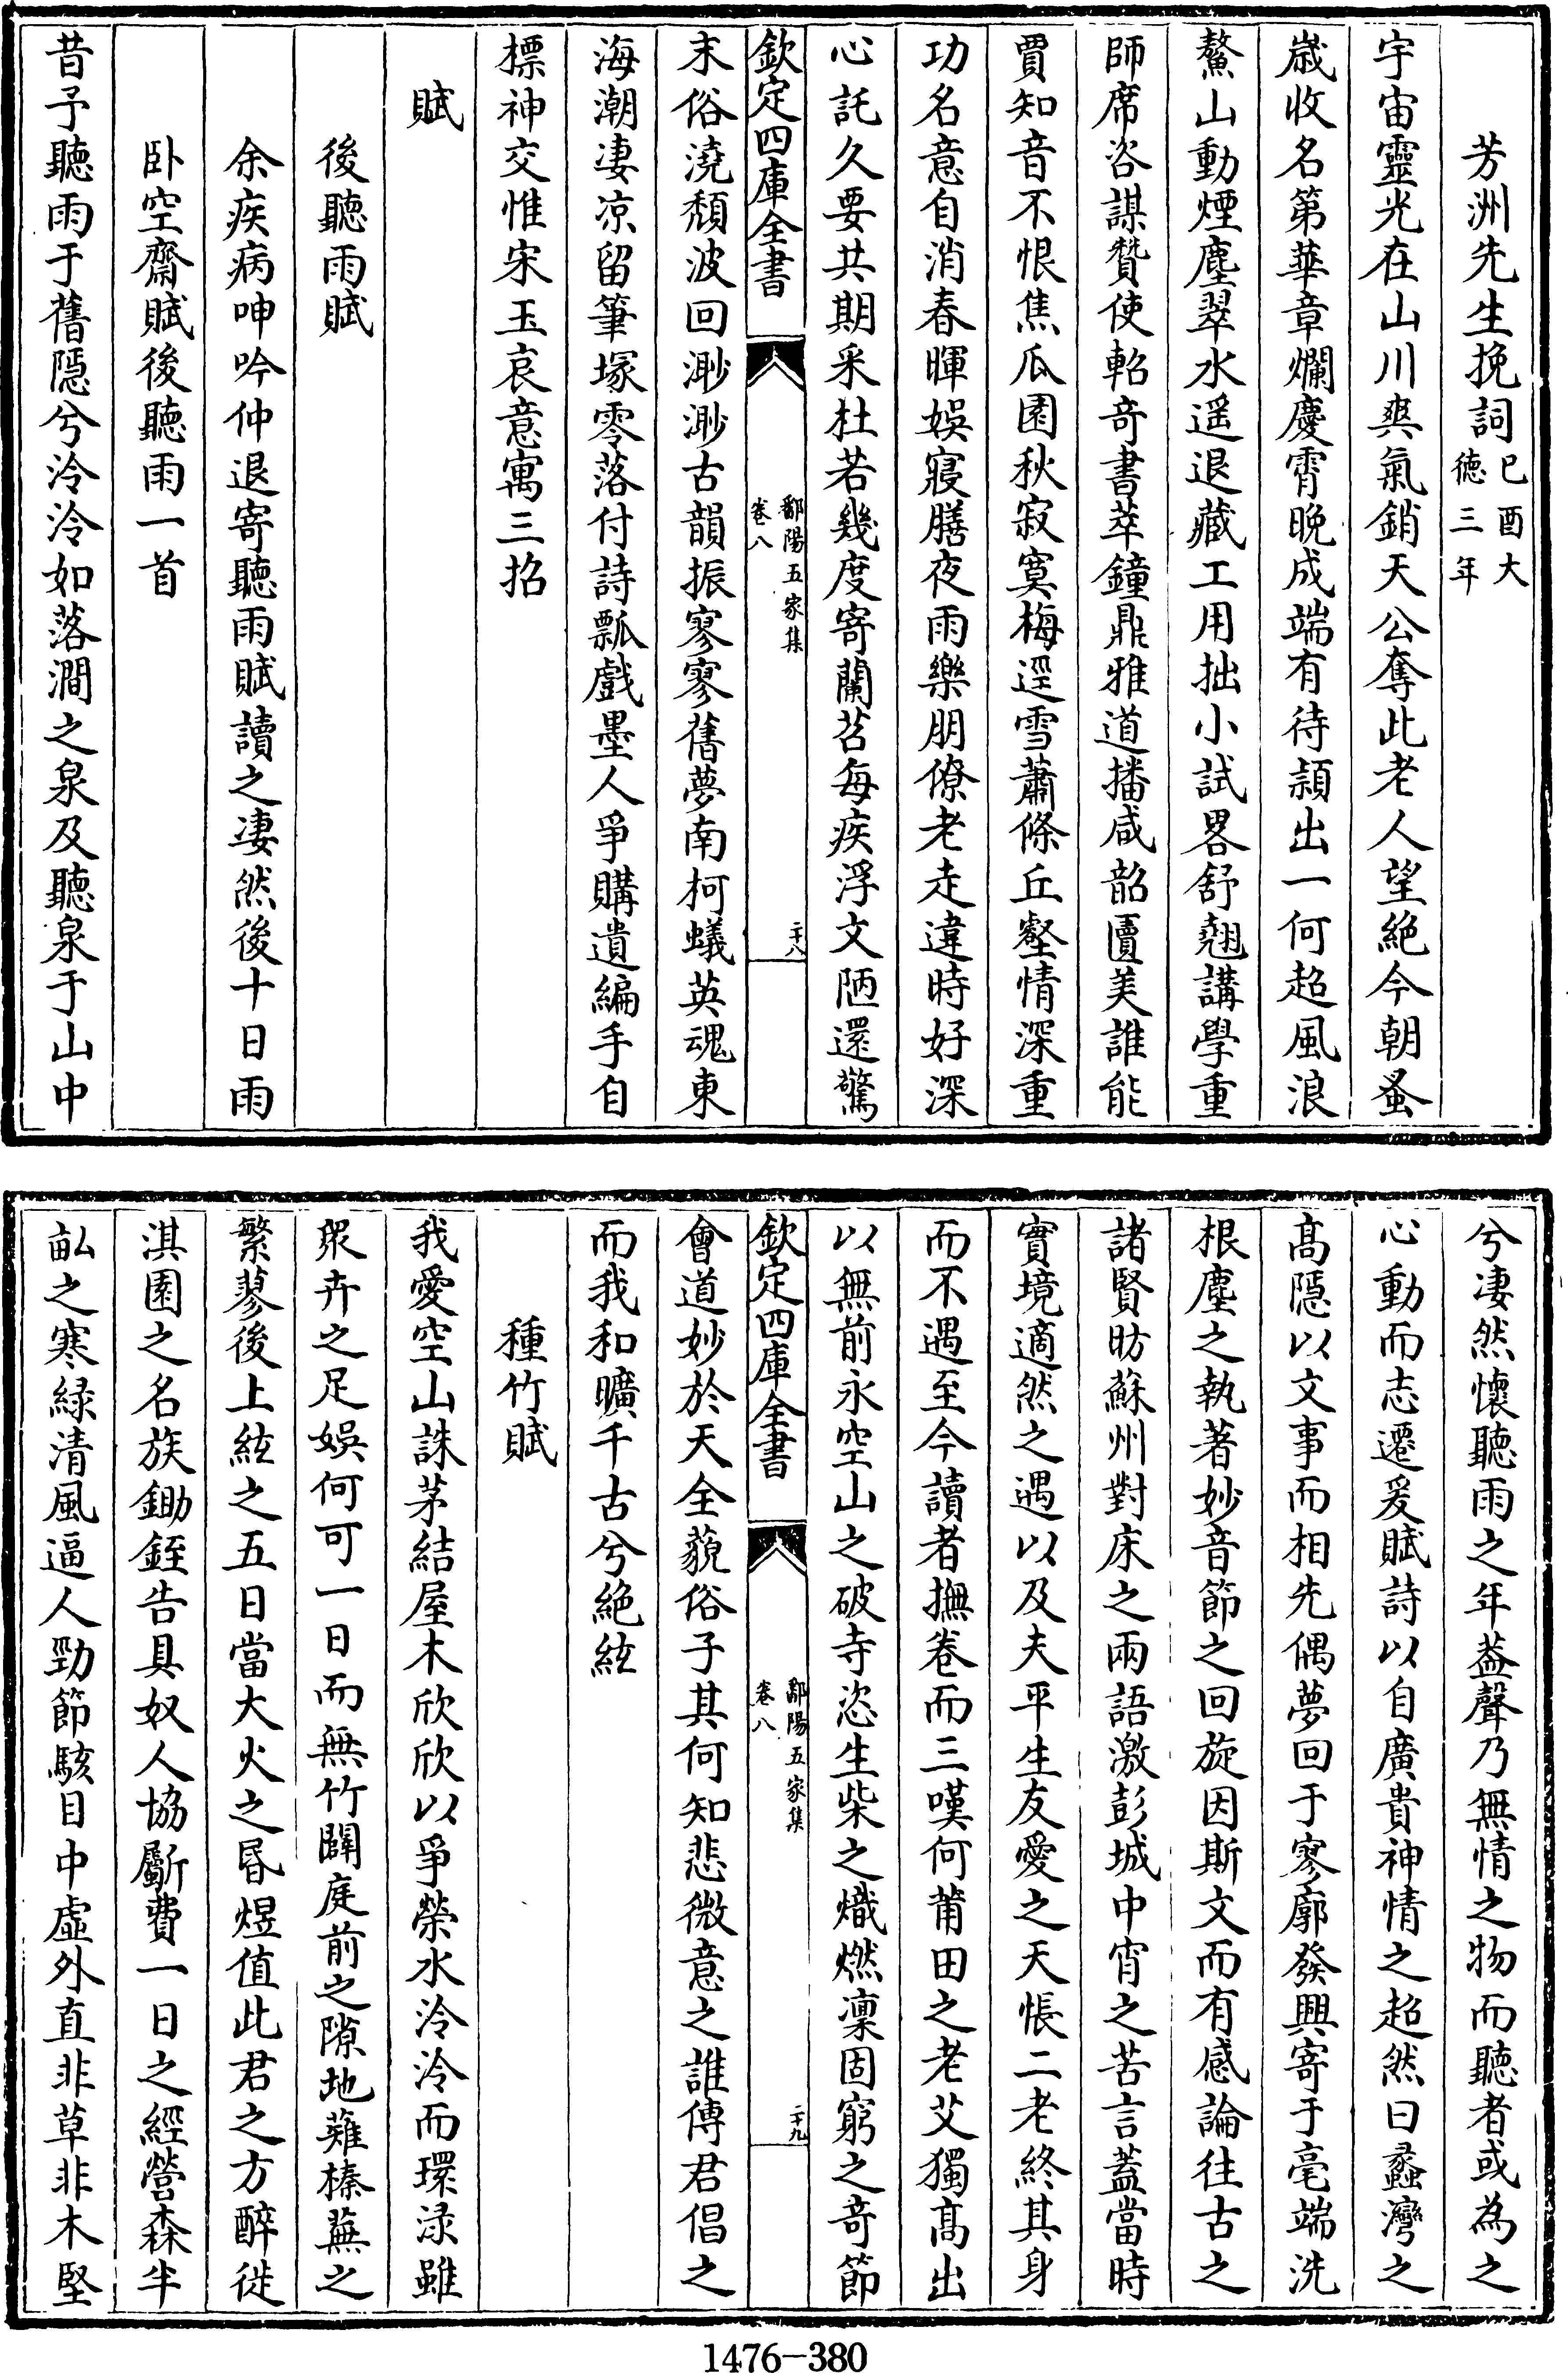 芳洲先生挽詞己酉大德三年
宇宙靈光在山川爽氣銷天公奪此老人望絕今朝蚤
歳收名第華章爛慶霄晚成端有待頴出一何超風浪
鰲山動煙塵翠水遥退藏工用拙小試畧舒翹講學重
師席咨謀贊使軺奇書萃鐘鼎雅道播咸韶匵美誰能
賈知音不恨焦瓜園秋寂寞梅逕雪蕭條丘壑情深重
功名意自消春暉娯寢膳夜雨樂朋僚老走違時好深
心託久要共期采杜若幾度寄蘭苕每疾浮文陋還驚
欽定四庫全書
鄱陽五家集
卷八
二十八
末俗澆頽波回渺渺古韻振寥寥舊夢南柯蟻英魂東
海潮凄凉留筆塚零落付詩瓢戲墨人爭購遺編手自
標神交惟宋玉哀意寓三招
賦
後聽雨賦
余疾病呻吟仲退寄聽雨賦讀之凄然後十日雨
卧空齋賦後聽雨一首
昔予聽雨于舊隱兮泠泠如落澗之泉及聽泉于山中
兮凄然懐聽雨之年葢聲乃無情之物而聽者或為之
心動而志遷爰賦詩以自廣貴神情之超然曰蠡灣之
髙隱以文事而相先偶夢回于寥廓發興寄于毫端洗
根塵之執著妙音節之回旋因斯文而有感論往古之
諸賢昉蘇州對床之兩語激彭城中宵之苦言蓋當時
實境適然之遇以及夫平生友愛之天悵二老終其身
而不遇至今讀者撫卷而三嘆何莆田之老艾獨髙出
以無前永空山之破寺恣生柴之熾燃凜固窮之竒節
欽定四庫全書
鄱陽五家集
卷八
二十九
會道妙於天全藐俗子其何知悲微意之誰傳君倡之
而我和曠千古兮絶絃
種竹賦
我愛空山誅茅結屋木欣欣以爭榮水泠泠而環渌雖
衆卉之足娯何可一日而無竹闢庭前之隙地薙榛蕪之
繁蓼後上絃之五日當大火之昏煜值此君之方醉徙
淇園之名族鋤銍告具奴人協斸費一日之經營森半
畝之寒緑清風逼人勁節駭目中虛外直非草非木堅
1476-380